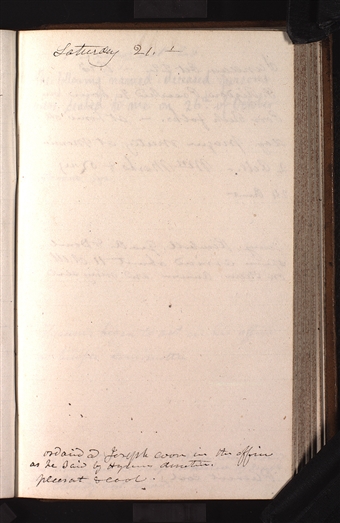 Saturday 21. st
ordaind Joseph coon in the offin
as he said by Hyrum
pleasat & cool.